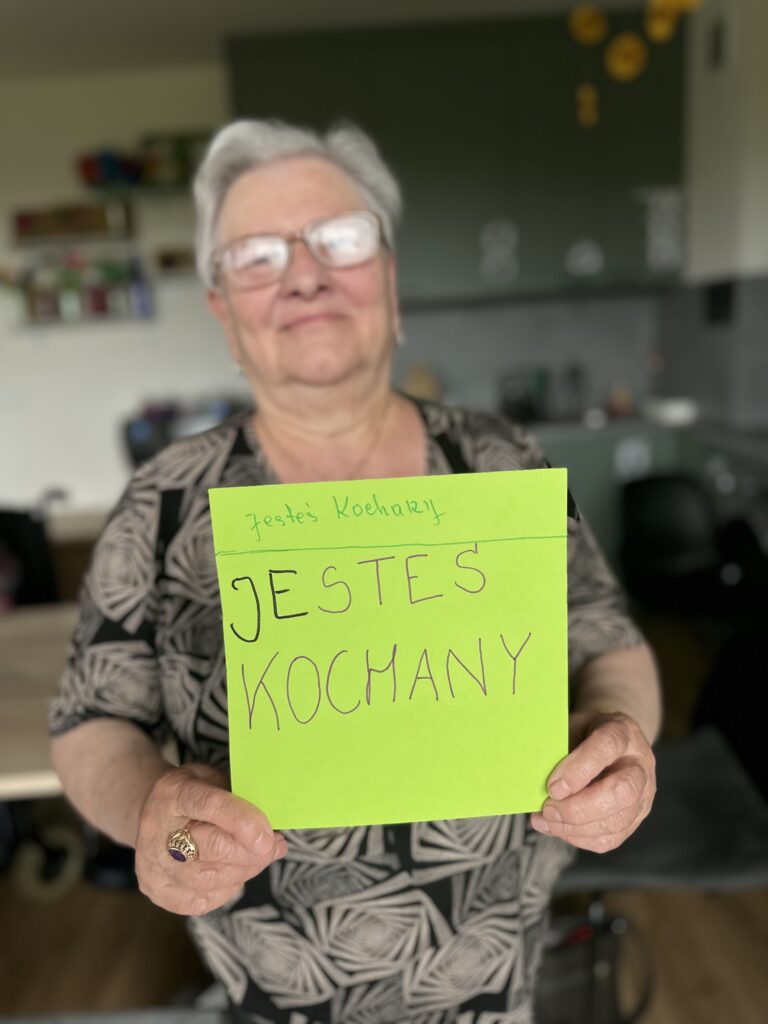 Jesteś Kochany
JESTEŚ
KOCHANY